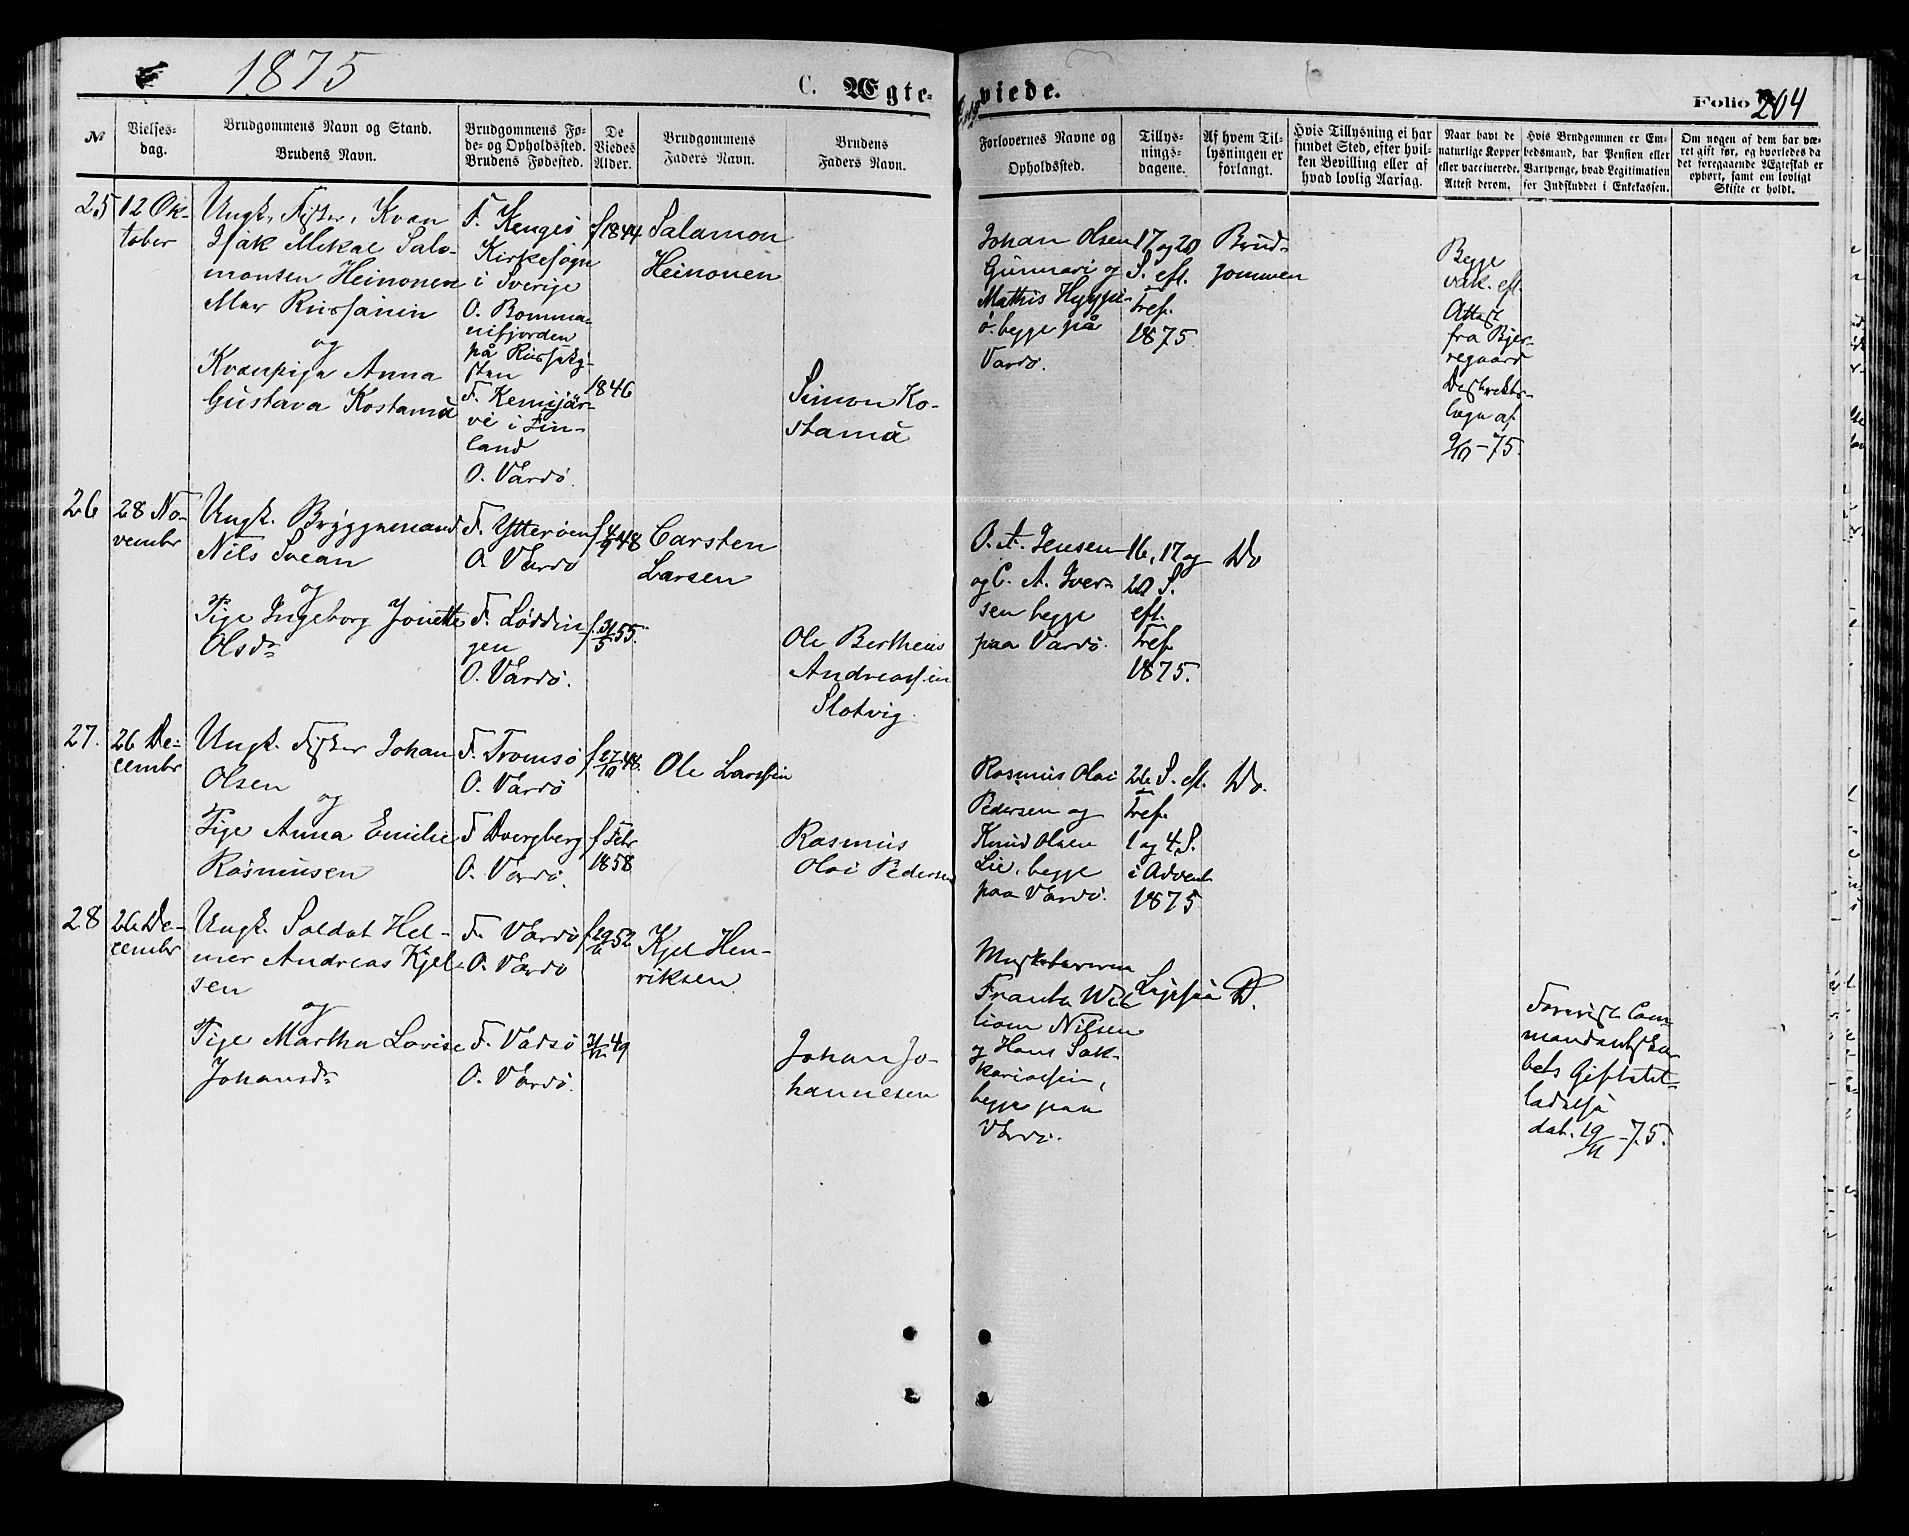 1875
C. Ægte-
viede.
Folio 204
No
Vielses-
dag.
Brudgommens Navn og Stand.
Brudens Navn.
Brudgommens Fø-
de- og Opholdssted.
Brudens Fødested.
De
Viedes
Alder.
Brudgommens
Faders Navn.
Brudens
Faders Navn.
Forlovernes Navne og
Opholdssted.
Tillys-
nings-
dagene.
Af hvem Til-
lysningen er
forlangt.
Hvis Tillysning ei har
fundet Sted, efter hvil-
ken Bevilling eller af
hvad lovlig Aarsag.
Naar havt de
naturlige Kopper
eller vaccinerede.
Attest derom.
Hvis Brudgommen er Em-
bedsmand, har Pension eller
Vartpenge, hvad Legitimation
for Indskuddet i Enkekassen.
Om nogen af dem har væ-
ret gift før, og hvorledes da
det foregaaende Ægteskab er
ophørt, samt om lovligt
Skifte er holdt.
25
12 Ok-
tober
Ungk. Fisker, Kvæn
Isak Mikal Salo-
monsen Heinonen
og
Kvænpige Anna
Gustava Kostamä
F. Kengis
Kirkesogn
i Sverige
O. Bomma-
nifjorden
på Russeky-
sten
F. Kemijär-
vi i Fin-
land
O. Vardö.
f 1844
1846
Salamon
Heinonen
Simon Ko-
stamä
Johan Olsen
Gunnari og
Mathis
begge på
Vardö.
17 og 20
S. eft.
Tref.
1875
Brud-
gommen
Begge
vak. eft.
Attest
fra Bjer-
regaard
Destrikts-
læge af
9/10 - 75.
26
28 No-
vembr
Ungk. Bryggemand
Nils Svean
og
Pige Ingeborg Jonette
Olsdr
F. Ytterøen
O. Vardö
F. Løddin
gen
O. Vardö.
f 4/9 48
f. 31/5 55.
Carsten
Larsen
Ole Bertheus
Andreassen
Slotvig.
O. A. Jensen
og C. A. Iver-
sen begge
paa Vardö.
16, 17 og
20 S.
eft.
Tref.
1875.
Do
27.
26 De-
cembr
Ungk. Fisker Johan
Olsen
og
Pige Anna Emilie
Rasmusen
F. Tromsö
O. Vardö
F Dvergberg
O. Vardö.
f 27/10 48.
f Febr
1858
Ole Larssen
Rasmus
Olai Pedersen
Rasmus Olai
Pedersen og
Knud Olsen
Lie, begge
paa Vardö.
26 S. eft.
Tref.
1 og 4 S.
i Advent
1875
Do.
28
26 De-
cembr
Ungk. Soldat Hel-
mer Andreas Kjel-
sen
og
Pige Martha Lovise
Johansdr
F. Vardö
O. Vardö
F. Vadsö
O. Vardö.
f 29/6 52
31/11 49
Kjel Hen-
riksen
Johan Jo-
hannesen
Franto Wil
liam Nilsen
og Hans Sak-
kariassen,
begge paa
Vardö.
Ligesaa
D.
Forevist Com-
mandantska-
bets Giftetil-
ladelse
dat. 19/11 - 75.